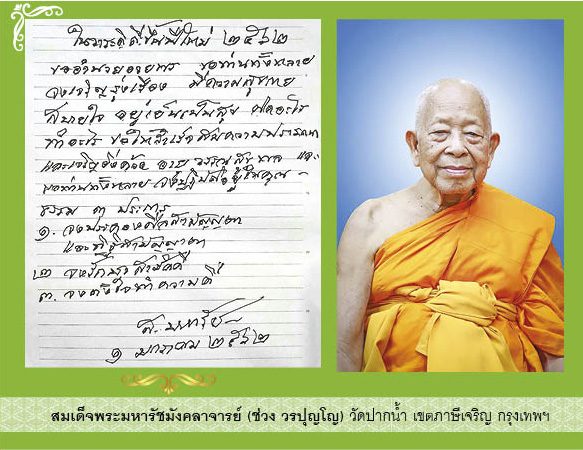 ในวาระดิถีขึ้นปีใหม่ ๒๕๖๒
ขออำนวยอวยพร ขอท่านทั้งหลาย
จงเจริญรุ่งเรือง มีความสุขกาย
สบายใจ อยู่เย็นเป็นสุข
ทำอะไร ขอให้สำเร็จ ความปรารถนา
อายุ วรรณะ สุขะ พละ และ
ขอท่านทั้งหลาย
ธรรม ๓ ประการ
๑. จงประคองศีลสามัญญตา
และทิฏฐิสามัญญตา
๒ จงรักษาสามัคคี
๓. จงตั้งใจทำความดี
๑ มกราคม ๒๕๖๒
สมเด็จพระมหารัชมังคลาจารย์ (ช่วง วรปุญฺโญ) วัดปากน้ำ เขตภาษีเจริญ กรุงเทพฯ